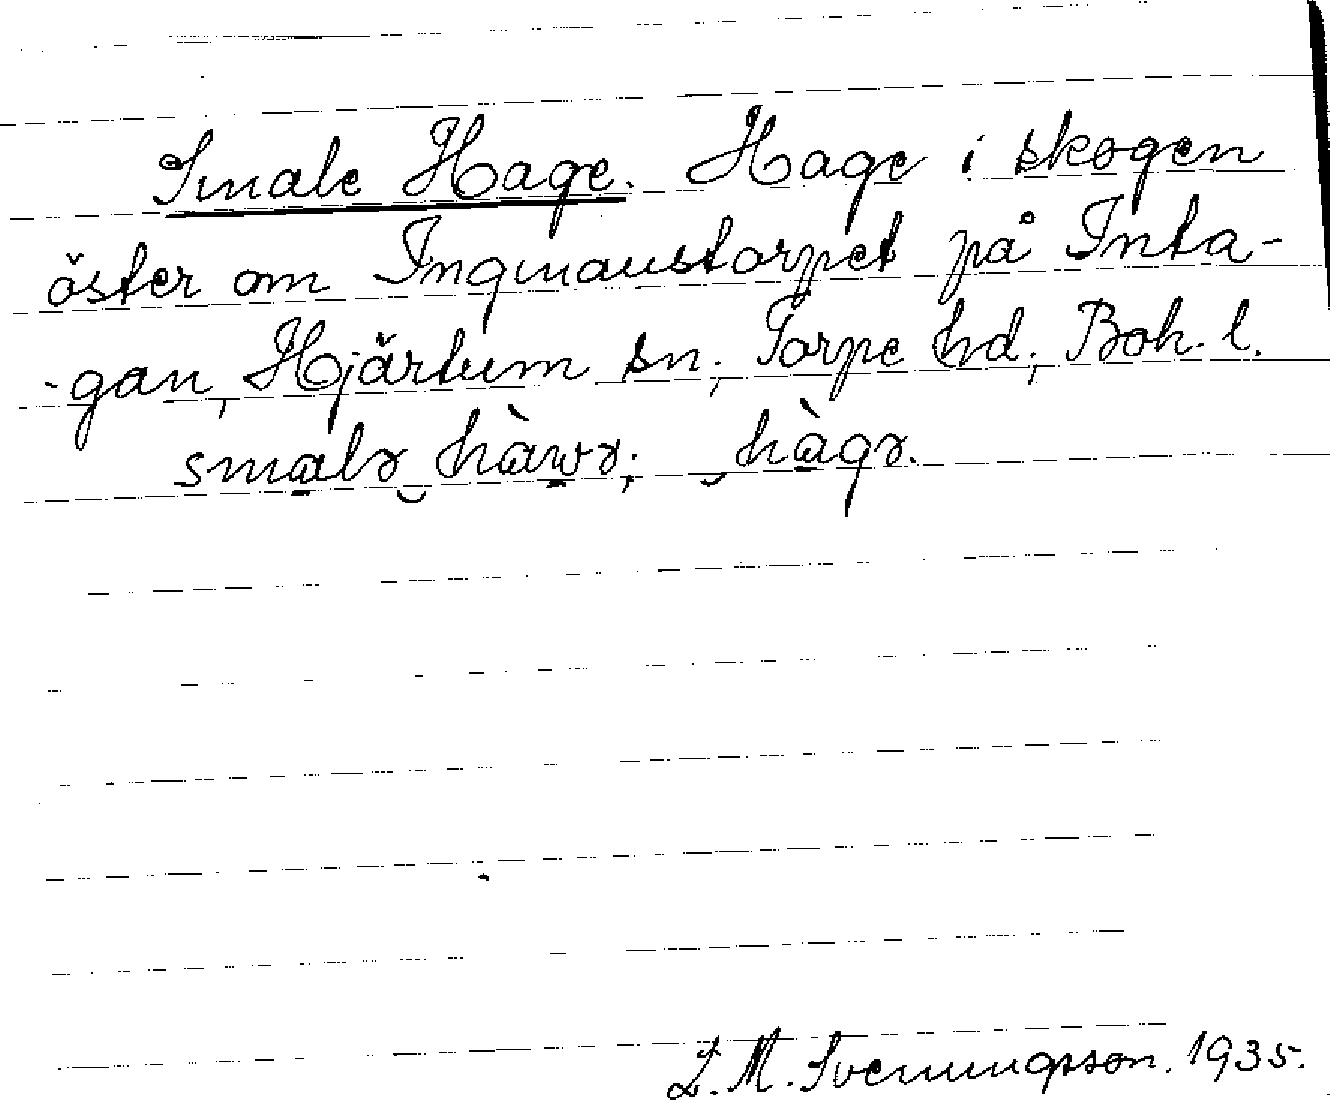 Smale Hage. Hage i skogen
öster om Ingmanstorpet på Inta-
-gan, Hjärtum sn; Torpe hd; Boh. l.
smalə hàwə; hàgə.
L. M. Svenningsson. 1935.